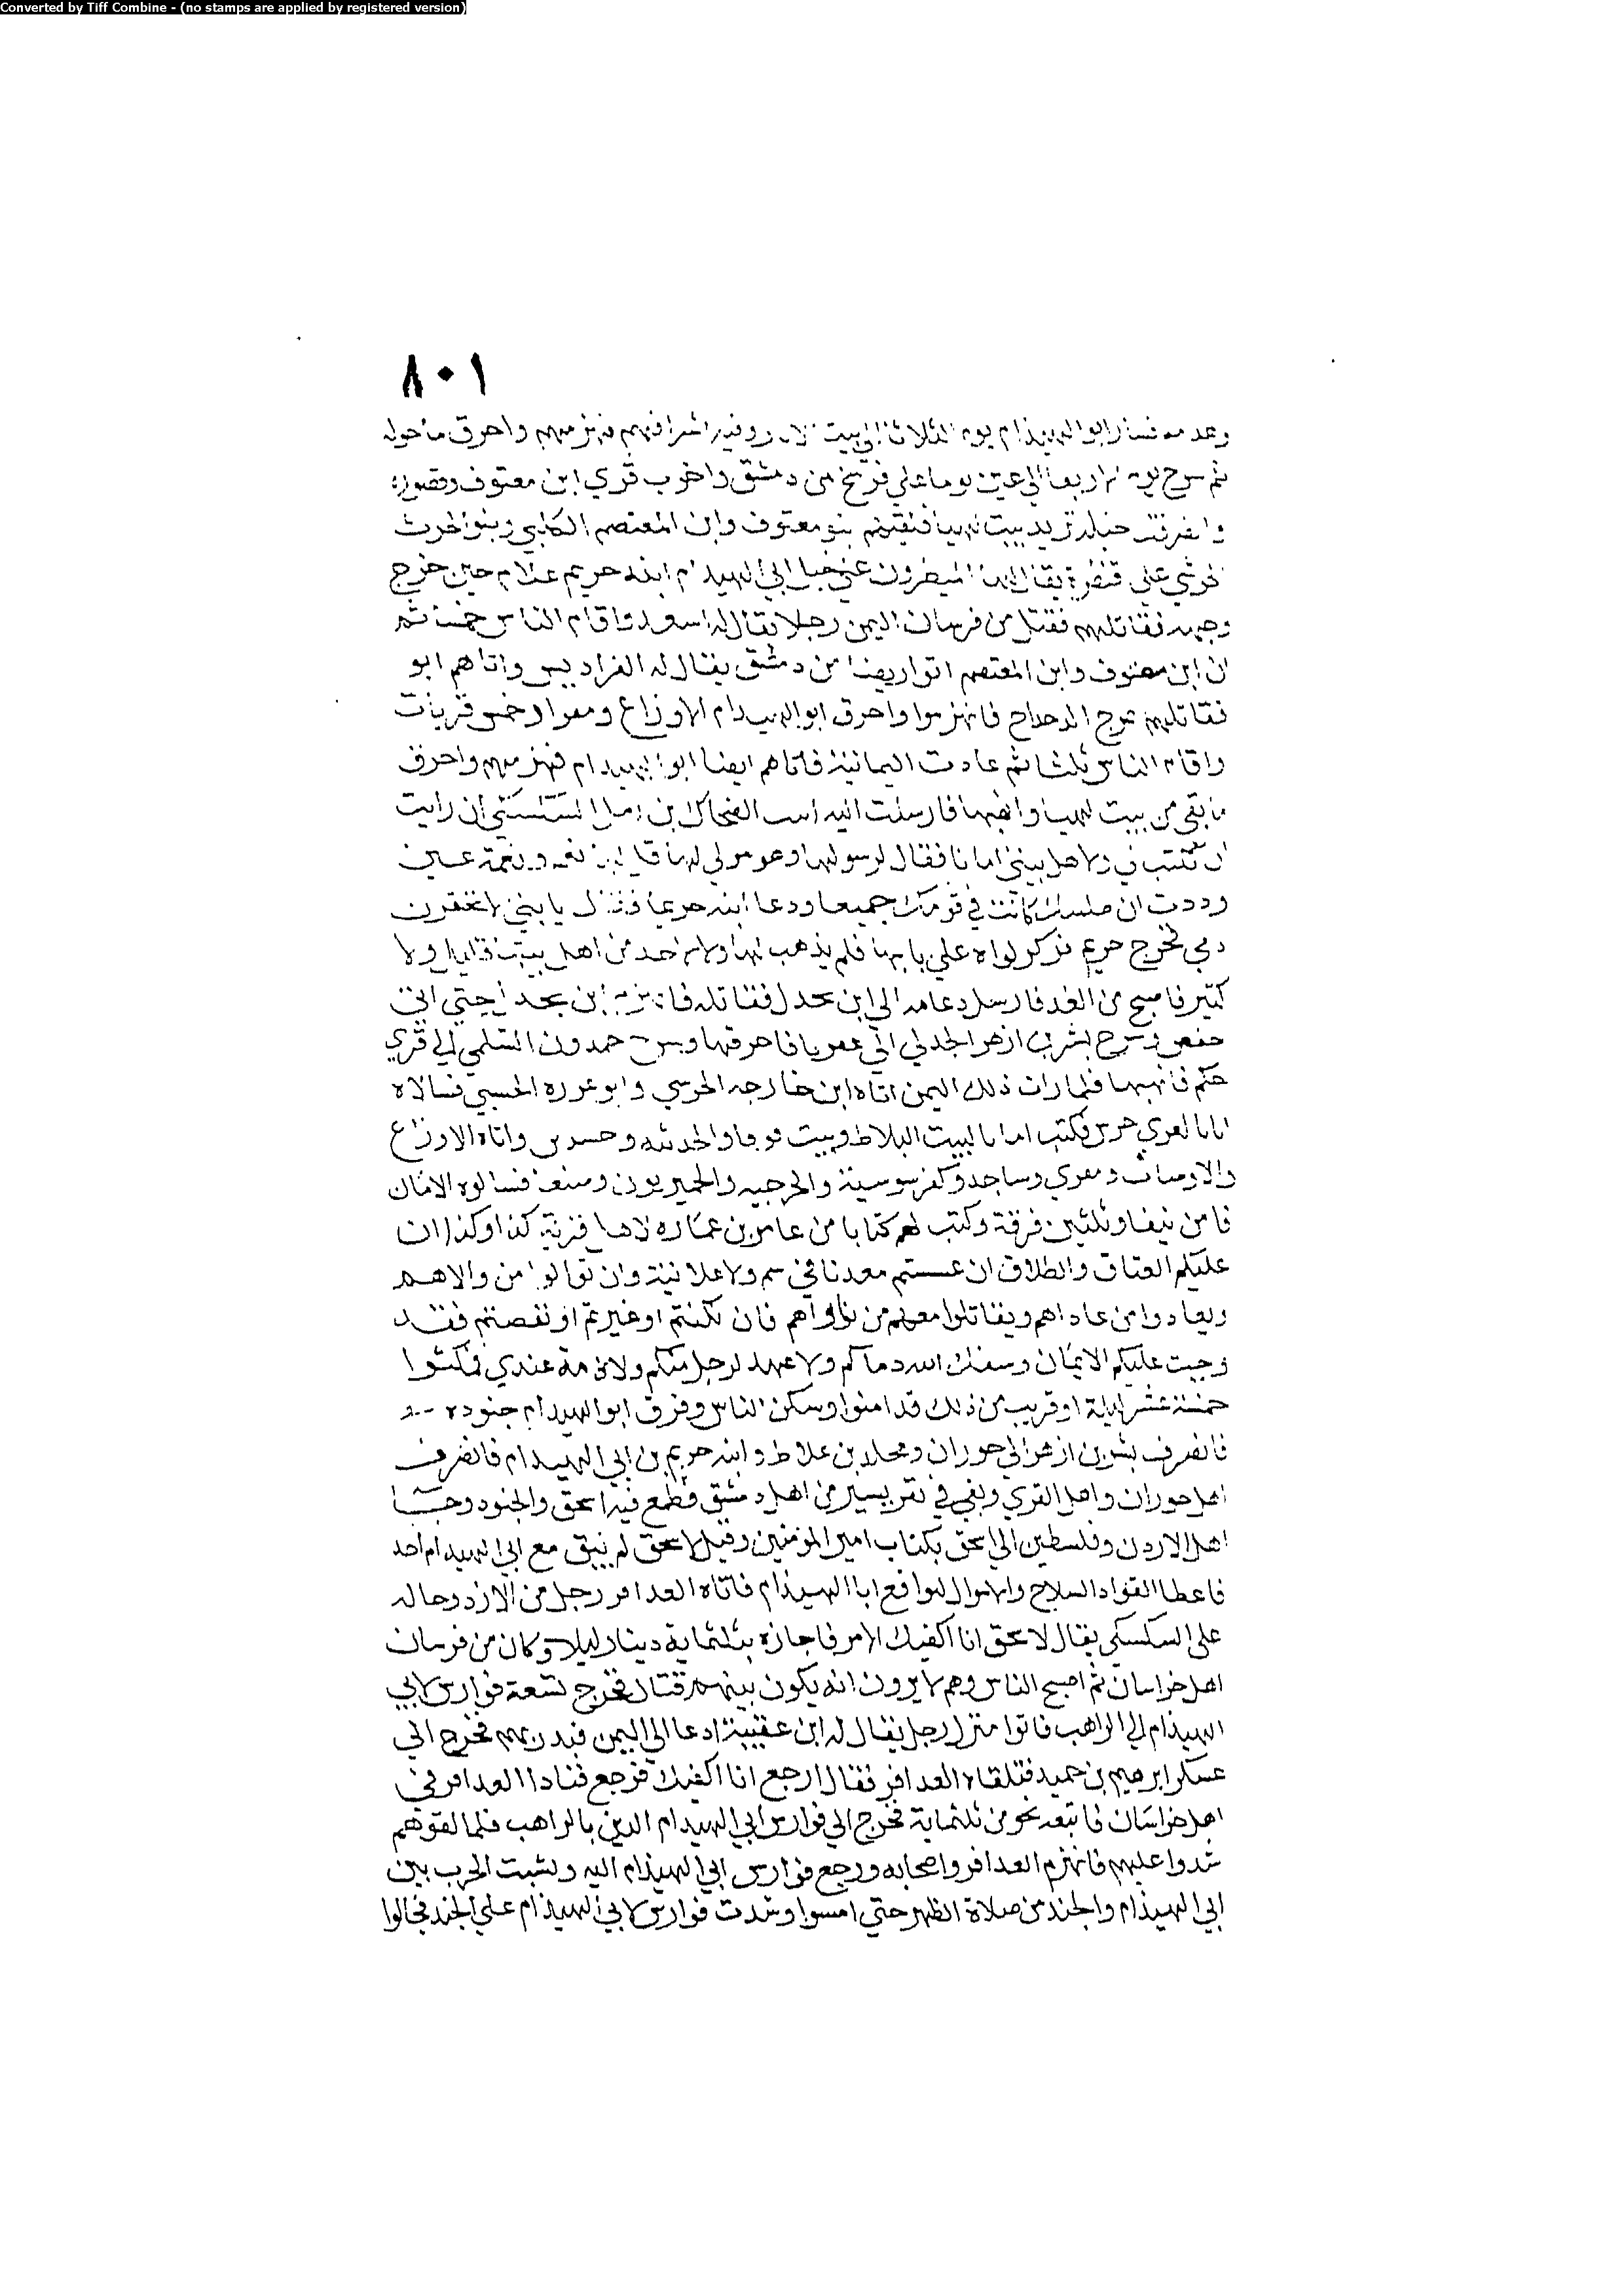 Converted by Tiff Combine - (no stamps are applied by registered version)
٨٠١
فسار ابو الهيذام يوم الثلاثا الي بيت اشرافهم فهزمهم واحرق ما حوله
ثم سرح يوم الاربعا الي علي فرسخ من دمشق واخرب قري ابن معتوف وقصوره
وانصرفت خيله تريد بيت لهيا فلقيتهم بنو معتوف وابن المعتصم الكلبي وبنو الحرث
علي قنطرة يقال لها وعلي خيل ابي الهيدام ابنه خريم غلام حين خرج
وجهه فقاتلهم فقتل من فرسان اليمن رجلا يقال له اسعد واقام الناس ثم
ان ابن معتوف وابن المعتصم اتوا ربضا من دمشق يقال له الفراديس واتاهم ابو
فقاتلهم بمرج الدحداح فانهزموا واحرق ابو الهيدام الاوزاع ومقرا وخمس قريات
واقام الناس ثلثا ثم عادت اليمانية فاتاهم ايضا ابو الهيدام فهزمهم واحرق
ما بقي من بيت لهيا وانهبها فارسلت اليه ابنت الضحاك بن رمل السكسكي ان رايت
ان تكتب لي ولاهل بيتي امانا فقال لرسولها وهو مولي لها نعم ونعمة عين
وددت ان كانت في قومك جميعا ودعا ابنه خريما فقال يا بني لا تخفرن
دمي فخرج خريم فركز لواه علي بابها فلم يذهب لها ولا لاحد من اهل بيتها قليل ولا
كثير فاصبح من الغد فارسل دعامه الي ابن بحدل فقاتله فانهزم ابن بحدل حتي اتي
حفص وسرح بشر بن ازهر الجدلي الي عقربا فاحرقها حمدون السلمي الي قري
حكم فانهبها فلما رات ذلك اليمن اتاه ابن خارجه الحرسي وابو عزره الخسبي فسالاه
امانا لقري فكتب امانا لبيت البلاط وبيت قوفا والحدثه واتاه الاوزاع
والاوصاب ومقري وساجد وكفرسوسية والحرجيه والحميريون فسالوه الامان
فامن نيفا وثلثين فرقة وكتب لهم كتابا من عامر بن عماره لاهل قرية كذا وكذا ان
عليكم العتاق والطلاق ان غششتم معدنا في سر ولا علانية وان توالوا من والاهم
ويعادوا من عاداهم ويقاتلوا معهم من ناواهم فان نكثتم او غيرتم او نقصتم فقد
وجبت عليكم الايمان وسفك الله دماكم ولا عهد لرجل منكم ولا ذمة عندي فمكثوا
خمسة عشر ليلة او قريب من ذلك قد امنوا وسكن الناس وفرق ابو الهيدام جنوده
فانصرف بشر بن ازهر الي حوران ومحلد بن علاط وابنه خريم بن ابي الهيدام فانصرف
اهل حوران واهل القري وبقي في نفر يسير من اهل دمشق فطمع فيه اسحق والجنود وحبسا
اهل الاردن وفلسطين الي اسحق بكتاب امير المومنين وقيل لاسحق لم يبق مع ابي الهيدام احد
فاعطا القواد السلاح والاموال ليواقع ابا الهيذام فاتاه العدافر رجل من الازد وحاله
علي السكسكي يقال لاسحق انا اكفيك الامر فاجازه بثلثماية دينار ليلا وكان من فرسان
اهل خراسان ثم اصبح الناس وهم لا يرون انه يكون بينهم قتال فخرج تسعة فوارس لابي
الهيذام الي الراهب فاتوا منزل رجل يقال له ابن عقيبة ادعا الي اليمن فخرج الي
عسكر ابرهيم بن حميد فتلقاه العدافر فقال ارجع انا اكفيك فرجع فنادا العدافر في
اهل خراسان فاتبعه نحو من ثلثماية فخرج الي فوارس ابي الهيدام الدين بالراهب فلما لقوهم
شدوا عليهم فانهزم العدافر واصحابه ورجع فوارس ابي الهيذام اليه ونشبت الحرب بين
ابي الهيذام والجند من صلاة الظهر حتي امسوا وشدت فوارس لابي الهيذام علي الجند فجالوا